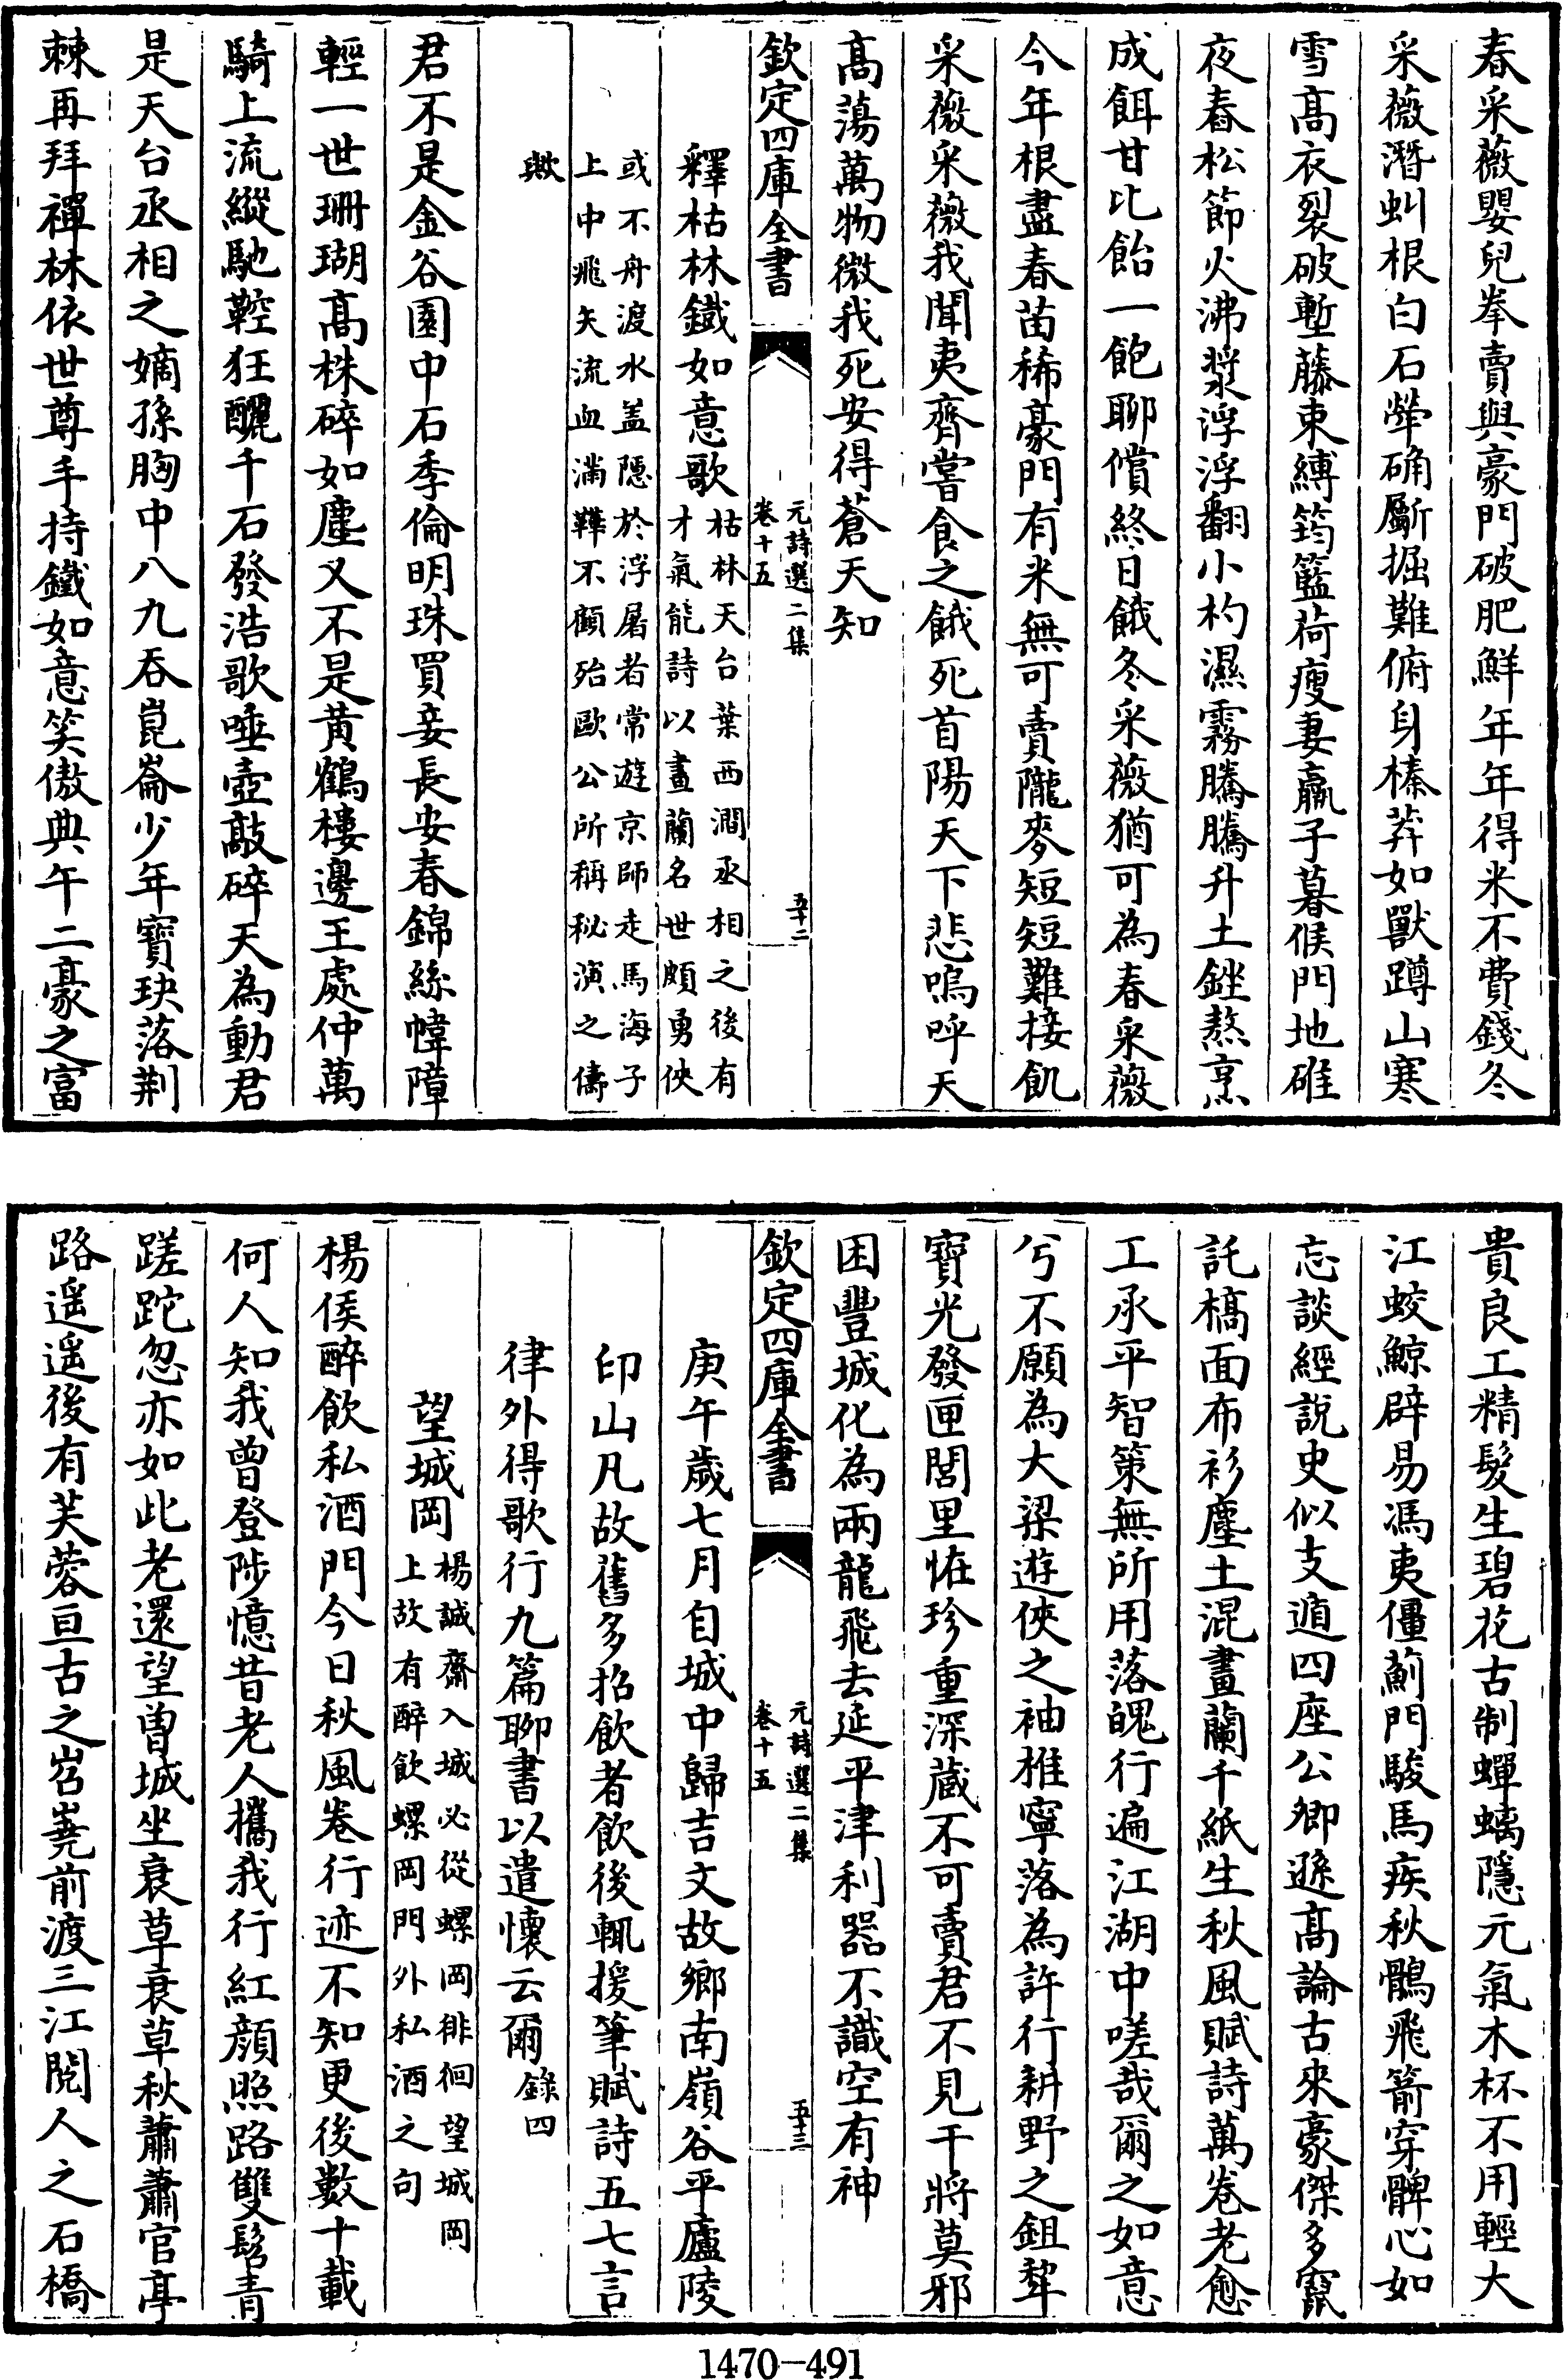 春采薇嬰兒拳賣與豪門破肥鮮年年得米不費錢冬
采薇潛虯根白石犖确斸掘難俯身榛莽如獸蹲山寒
雪高衣裂破塹藤束縛筠籃荷瘦妻羸子暮候門地碓
夜舂松節火沸漿浮浮翻小杓濕霧騰騰升土銼熬烹
成餌甘比飴一飽聊償終日餓冬采薇猶可為春采薇
今年根盡春苗稀豪門有米無可賣隴麥短短難接飢
采薇采薇我聞夷齊嘗食之餓死首陽天下悲嗚呼天
高蕩萬物微我死安得蒼天知
欽定四庫全書
元詩選二集
卷十五
五十二
釋枯林鐵如意歌
枯林天台葉西澗丞相之後有
才氣能詩以畫蘭名世頗勇俠
或不舟渡水盖隱於浮屠者常遊京師走馬海子
上中飛矢流血滿鞾不顧殆歐公所稱秘演之儔
歟
君不是金谷園中石季倫明珠買妾長安春錦絲幃障
輕一世珊瑚高株碎如塵又不是黃鶴樓邊王處仲萬
騎上流縱馳鞚狂釃千石發浩歌唾壺敲碎天為動君
是天台丞相之嫡孫胸中八九吞崑崙少年寶玦落荆
棘再拜禪林依世尊手持鐵如意笑傲典午二豪之富
貴良工精髮生碧花古制蟬螭隱元氣木杯不用輕大
江蛟鯨辟易馮夷僵薊門駿馬疾秋鶻飛箭穿髀心如
忘談經說史似支遁四座公卿遜高論古來豪傑多竄
託槁面布衫塵土混畫蘭千紙生秋風賦詩萬卷老愈
工承平智策無所用落魄行遍江湖中嗟哉爾之如意
兮不願為大梁遊俠之袖椎寧落為許行耕野之鉏犂
寶光發匣閭里恠珍重深蔵不可賣君不見干將莫邪
困豐城化為兩龍飛去延平津利器不識空有神
欽定四庫全書
元詩選二集
卷十五
五十三
庚午歲七月自城中歸吉文故鄉南嶺谷平廬陵
印山凡故舊多招飲者飲後輒援筆賦詩五七言
律外得歌行九篇聊書以遣懷云爾
錄四
望城岡
楊誠齋入城必從螺岡徘徊望城岡
上故有醉飲螺岡門外私酒之句
楊侯醉飲私酒門今日秋風卷行迹不知更後數十載
何人知我曾登陟憶昔老人攜我行紅顏照路雙髩青
蹉跎忽亦如此老還望曽城坐衰草衰草秋蕭蕭官亭
路遥遥後有芙蓉亘古之岧嶤前渡三江閱人之石橋
1470-491